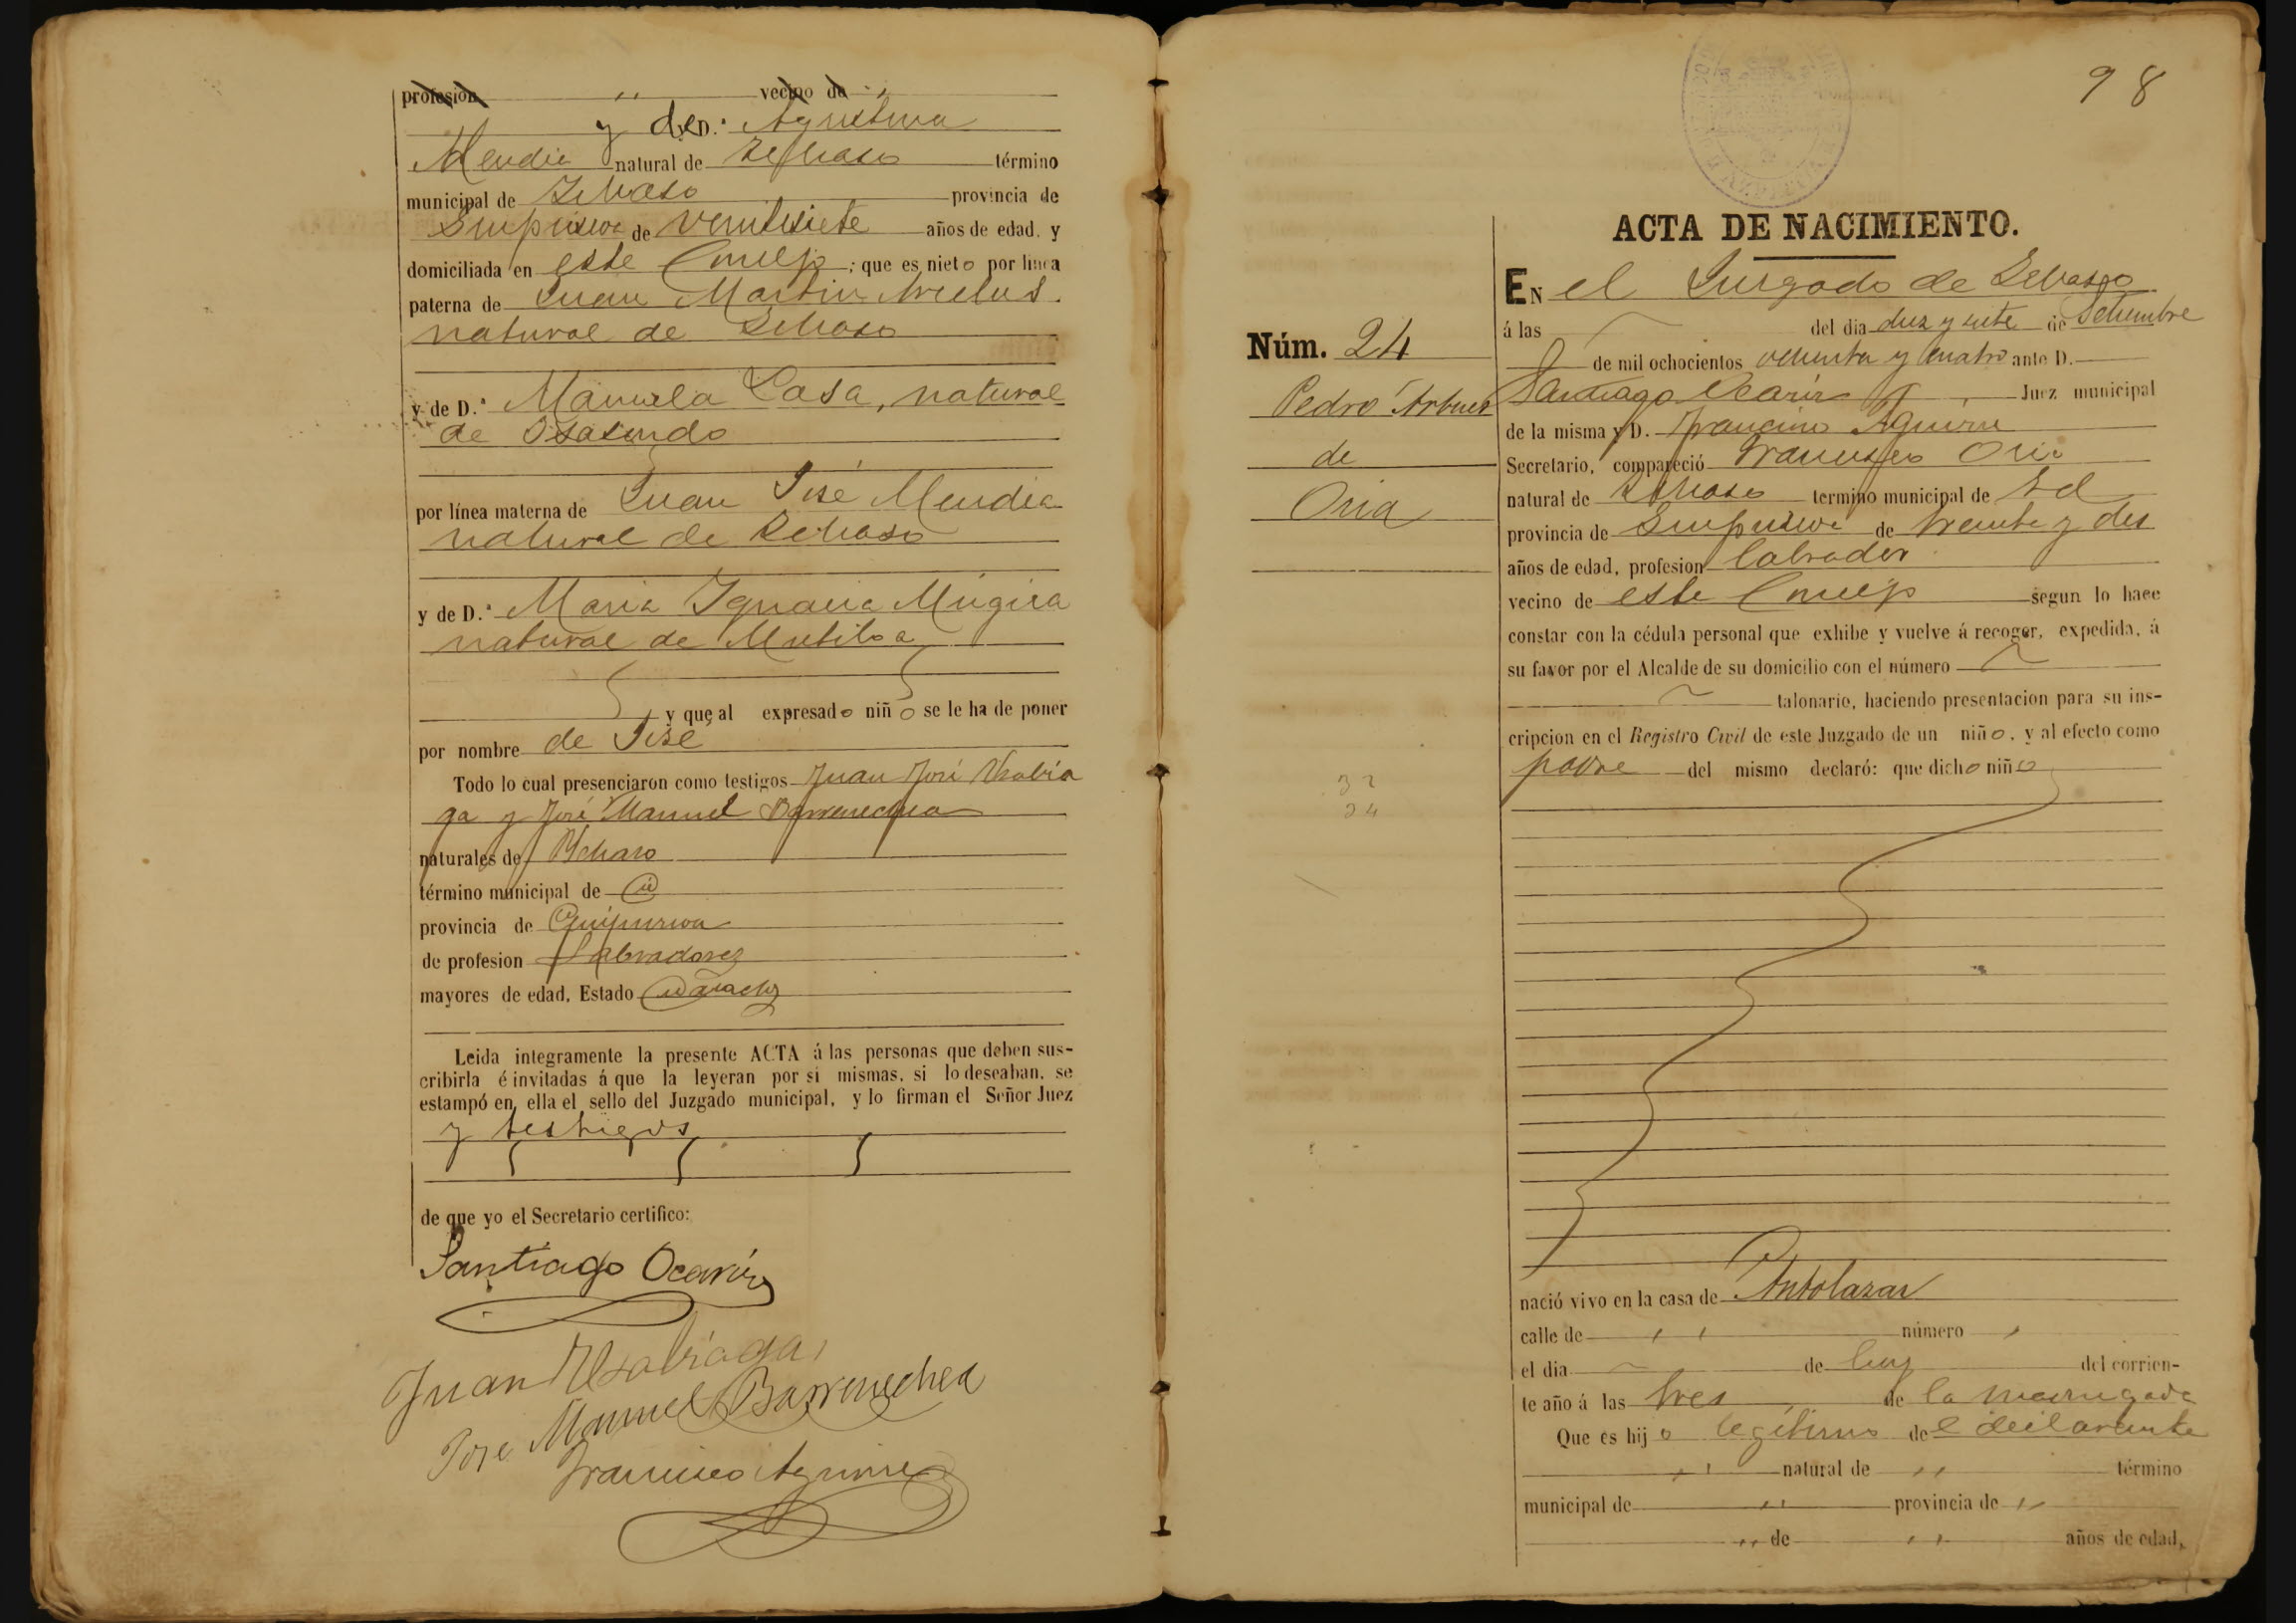 profesion " vecino de "
y de D.ª Agustina
Mendia natural de Cegama término
municipal de provincia de
Guipuzcoa de veintisiete años de edad, y
domiciliada en este Concejo; que es nieto por linea
paterna de Juan Martin
natural de
y de D.ª Manuela Lasa, natural
de Ysasondo
por línea materna de Juan José Mendia
natural de
y de D.ª Maria Ygnacia Mugica
natural de Mutiloa
y que al expresado niño se le ha de poner
por nombre de José
Todo lo cual presenciaron como testigos Juan José Usabia
ga y José Manuel Barrenechea
naturales de
término municipal de id
provincia de Guipuzcoa
de profesion Labradores
mayores de edad, Estado
Leida integramente la presente ACTA á las personas que deben sus-
cribirla é invitadas á que la leyeran por si mismas, si lo deseaban, se
estampó en ella el sello del Juzgado municipal, y lo firman el Señor Juez
y testigos
de que yo el Secretario certifico:
Santiago Ocariz
Juan Usabiaga
Jose Manuel Barrenechea
Francisco Aguirre
98
ACTA DE NACIMIENTO.
Núm. 24
Pedro Arbues
de
Oria
EN el Jusgado de
á las del dia diez y siete de Setiembre
de mil ochocientos ochenta y cuatro ante D.
Santiago Ocariz Juez municipal
de la misma y D. Francisco Aguirre
Secretario, compareció Francisco Oria
natural de termino municipal de id
provincia de Guipuzcoa de treinta y dos
años de edad, profesion labrador
vecino de este Concejo segun lo hace
constar con la cédula personal que exhibe y vuelve á recoger, expedida, á
su favor por el Alcalde de su domicilio con el número
talonario, haciendo presentacion para su ins-
cripcion en el Registro Civil de este Juzgado de un niño, y al efecto como
padre del mismo declaró: que dicho niño
32
34
nació vivo en la casa de Antolazar
calle de " número "
el dia de hoy del corrien-
te año á las tres de la madrugada
Que es hijo legítimo del declarante
" natural de " término
municipal de " provincia de "
" de " años de edad,